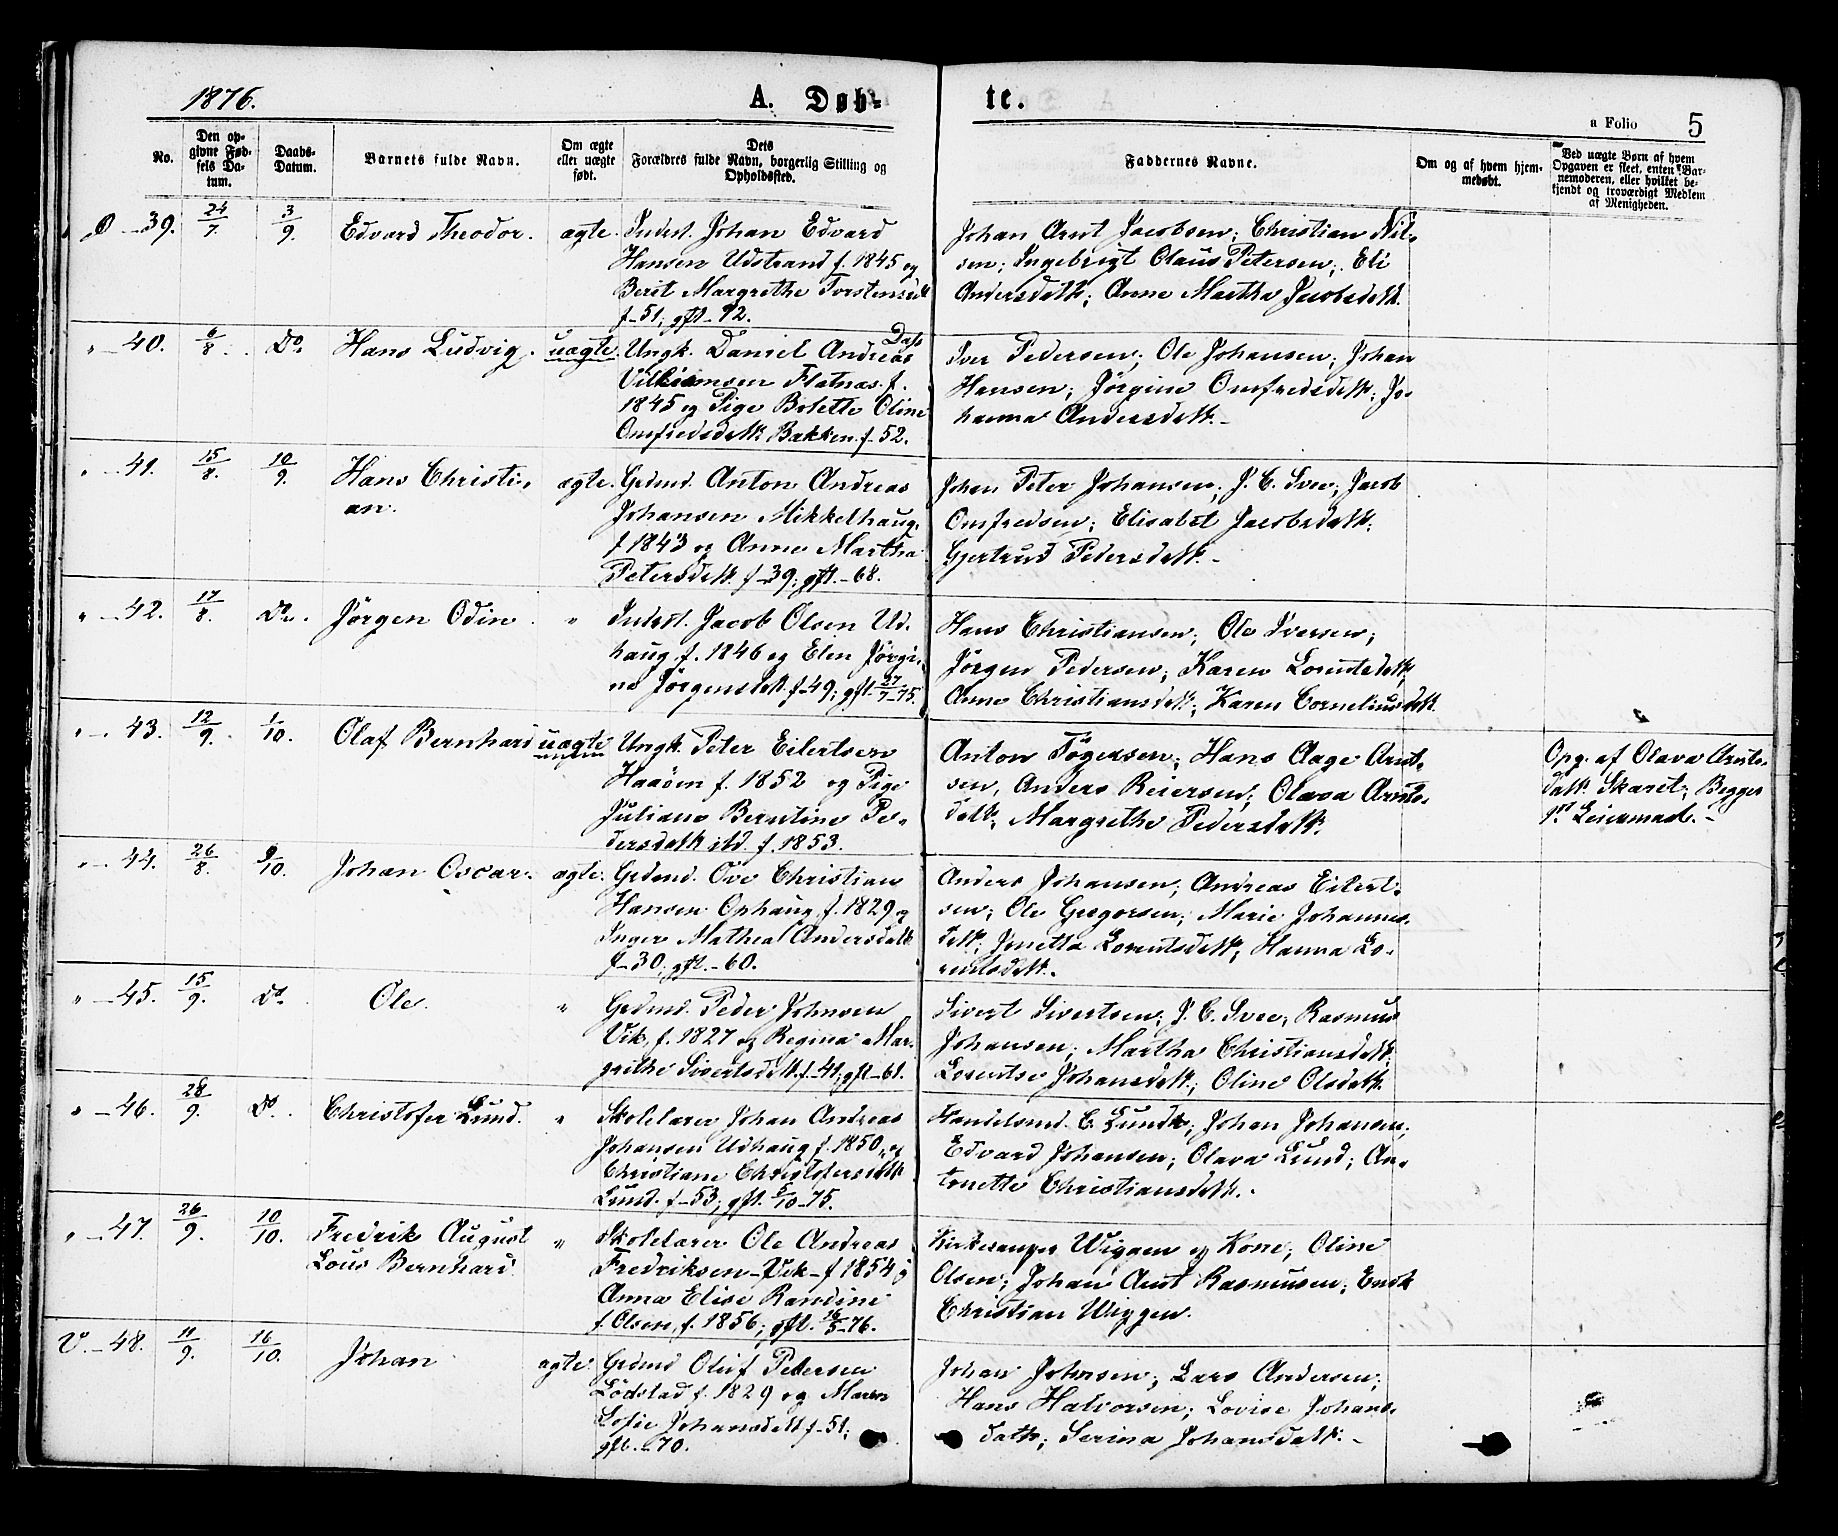 1876.
A. Døb-
te.
a Folio 5
No.
Den op-
givne Fød-
sels Da-
tum.
Daabs-
Datum.
Barnets fulde Navn.
Om ægte
eller uægte
født.
Dets
Forældres fulde Navn, borgerlig Stilling og
Opholdssted.
Faddernes Navne.
Om og af hvem hjem-
medøbt.
Ved uægte Børn af hvem
Opgaven er skeet, enten Bar-
nemoderen, eller hvilket be-
kjendt og troværdigt Medlem
af Menigheden.
Ø - 39. 24/7. 3/9. Edvard Theodor. ægte. Inderst. Johan Edvard
Hansen Udstrand f. 1845 og
Berit Margrethe Torstensdtt
f - 51; gft - 72.
Johan Arnt Jacobsen; Christian Nil-
sen; Ingebrigt Olaus Petersen; Eli
Andersdatt; Anne Martha Jacobsdatt.
" - 40. 6/8. Do. Hans Ludvig. uægte. Ungk. Daniel Andreas Dass
Villiamsen Flatnæs f.
1845 og Pige Bolette Oline
Onsfredsdatt. Bakken f - 52.
Iver Pedersen; Ole Johansen; Johan
Hansen; Jørgine Onsfredsdatt; Jo-
hanna Andersdatt. -
" - 41. 15/8. 10/9. Hans Christi-
an. ægte. Grdmd. Anton Andreas
Johansen Mikkelhaug.
f 1843 og Anne Martha
Petersdatt. f - 39; gft. - 68.
Johan Peter Johansen; J. C. Svee; Jacob
Onsfredsen; Elisabet Jacobsdatt;
Gjertrud Pedersdatt. -
" - 42. 17/8. Do. Jørgen Odin. " Inderst. Jacob Olsen Ud-
haug f. 1846 og Elen Jørgi-
ne Jørgensdatt. f - 49; gft. 27/7 - 75.
Hans Christiansen; Ole Iversen;
Jørgen Pedersen; Karen Lorentsdatt
Anne Christiansdatt; Karen Corneliusdatt.
" - 43. 12/9. 1/10. Olaf Bernhard uægte Ungk. Peter Eilertsen
Haaøen f. 1852 og Pige
Juliane Berntine Pe-
dersdatt itd. f. 1853.
Anton Tøgersen; Hans Aage Arnt-
sen, Anders Reiersen; Olava Arnts-
datt; Margrethe Pedersdatt.
Opg. af Olava Arnts-
datt Skaret; Begges
1st Leiermaal. -
" - 44. 26/8. 9/10. Johan Oscar. ægte. Grdmd. Ove Christian
Hansen Ophaug f. 1829 og
Inger Mathea Andersdatt
f - 30; gft. - 60.
Anders Johansen; Andreas Eilert-
sen; Ole Gregorsen; Marie Johannes-
datt; Jonetta Lorentsdatt; Hanna Lo-
rentsdatt.
" - 45. 15/9. Do. Ole. " Grdmd. Peder Johnsen
Vik, f. 1827 og Regina Mar-
grethe Sivertsdatt. f - 41; gft - 61.
Sivert Sivertsen; J. C. Svee; Rasmus
Johansen; Martha Christiansdatt;
Lorentse Johansdatt; Oline Olsdatt.
" - 46. 28/9. Do. Christofer Lund. " Skolelærer Johan Andreas
Johansen Udhaug f. 1850, og
Christiane Christofersdatt
Lund. f - 53; gft. 5/10 - 75.
Handelsmd. C. Lund; Johan Johansen;
Edvard Johansen; Olava Lund; An-
tonette Christiansdatt. -
" - 47. 26/9. 10/10. Fredrik August
Louis Bernhard. " Skolelærer Ole Andreas
Fredriksen - Vik - f 1854 og
Anna Elise Randine
f. Olsen, f. 1856; gft. 16/5 - 76.
Kirkesanger Wiggen og Kone; Oline
Olsen; Johan Arnt Rasmussen; Enok
Christian Wiggen.
V. - 48. 11/9. 16/10. Johan ægte Grdmd Oluf Petersen
Lödstad f. 1829 og Maren
Sofie Johansdatt f - 51;
gft. - 70.
Johan Johnsen; Lars Andersen;
Hans Halvorsen; Lovise Johans-
datt; Serina Johansdatt. -